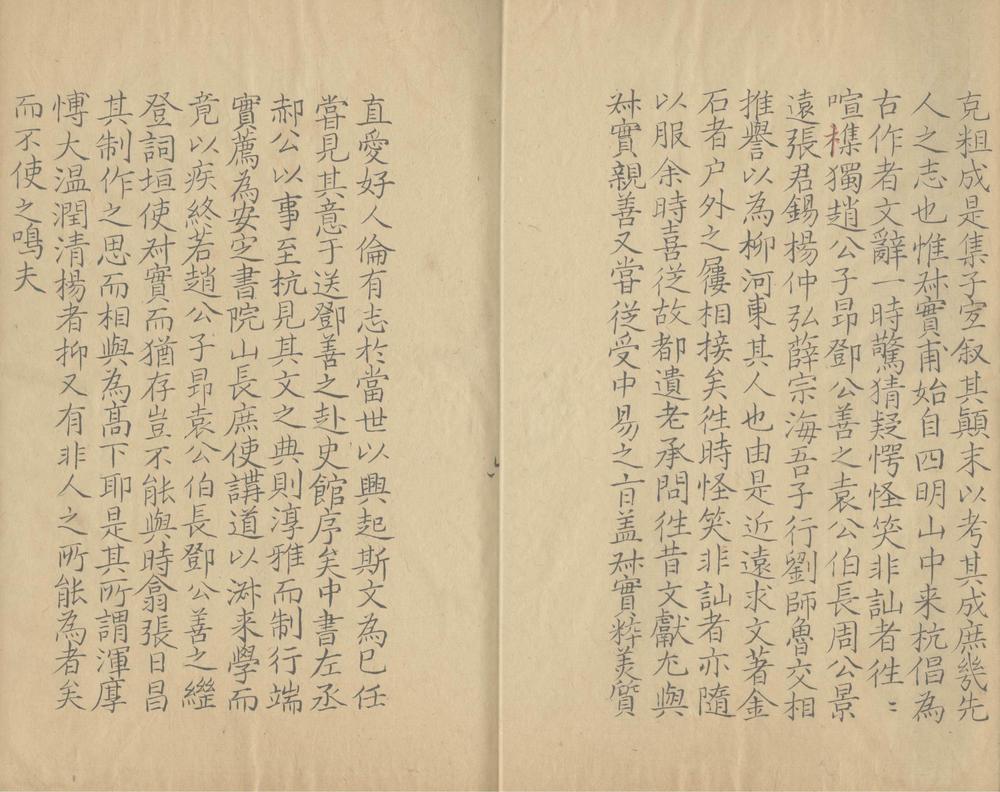 克粗成是集子宜叙其顛末以考其成庶幾先
人之志也惟敊實甫始自四明山中来杭倡為
古作者文辭一時驚猜疑愕怪笑非訕者徃〻
喧襍獨趙公子昻鄧公善之袁公伯長周公景
遠張君錫楊仲弘薛宗海吾子行劉師魯交相
推譽以為柳河東其人也由是近遠求文著金
石者户外之屨相接矣徃時怪笑非訕者亦隨
以服余時喜從故都遺老承問徃昔文獻尤與
敊實親善又甞從受中易之言盖敊實粹美質
直愛好人倫有志於當世以興起斯文為已任
甞見其意于送鄧善之赴史館序矣中書左丞
郝公以事至杭見其文之典則淳雅而制行端
實薦為安定書院山長庶使講道以淑来學而
竟以疾終若趙公子昻袁公伯長鄧公善之繼
登詞垣使敊實而猶存豈不能與時翕張日昌
其制作之思而相與為高下耶是其所謂渾厚
愽大温潤清楊者抑又有非人之所能為者矣
而不使之鳴夫